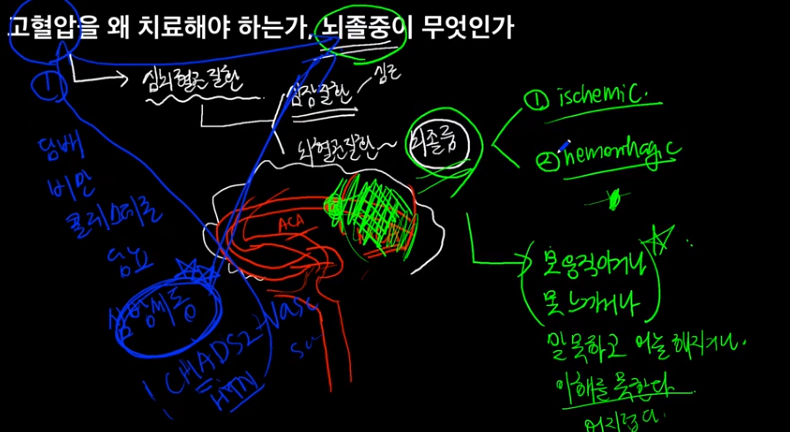 고혈압을 왜 치료해야 하는가, 뇌졸중이 무엇인가
① 심뇌혈관질환
심장질환
뇌혈관질환
뇌졸중
① ischemic.
② hemorrhagic
담배
비만
콜레스테롤
당뇨
심방세동
CHADS2-Vasc
HTN
ACA
못움직이거나
못느끼거나
말 못하고 어눌해지거나.
이해를 못한다
어지럽다.